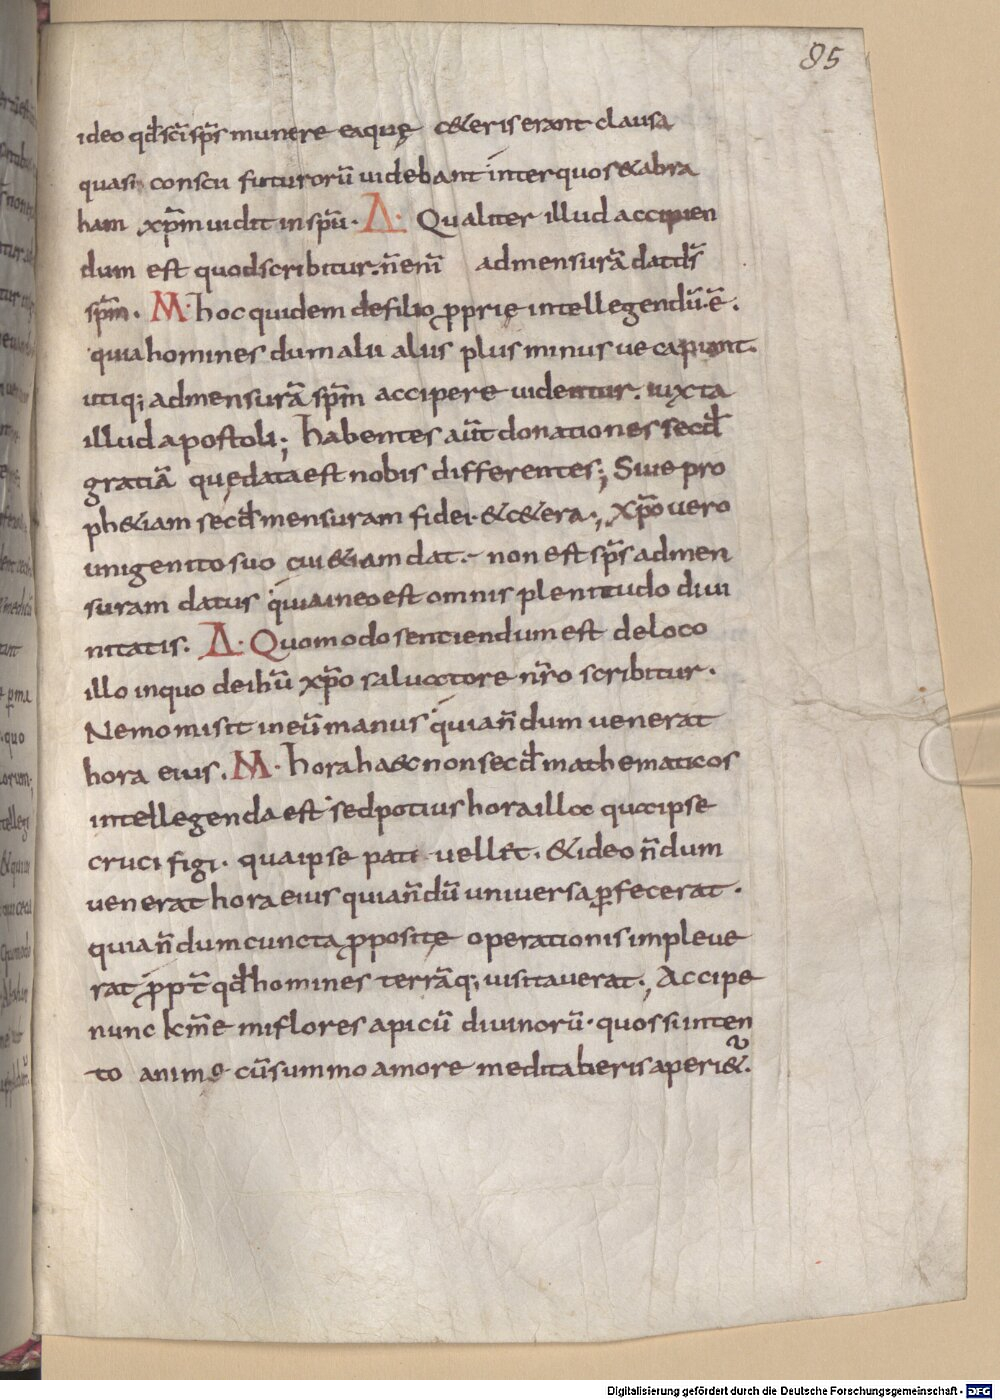 85
ideo qđ sc̄i sp̄s munere eaquę c&eris erant clausa
quasi conscii futurorū uidebant inter quos & abra
ham xp̄m uidit in sp̄u· Δ· Qualiter illud accipien
dum est quod scribitur. n̄ enī ad mensurā dat d̄s
sp̄m. M· hoc quidem de filio proprię intellegendū·ē·
quia homines dum alii aliis plus minusue capiunt·
utiq; ad mensurā sp̄m accipere uidentur. iuxta
illud apostoli; habentes aūt donationes secđ
gratiā quę data est nobis differentes; Siue pro
ph&iam secđ mensuram fidei·&c&era·, xp̄o uero
unigenito suo cui &iam dat·- non est sp̄s ad men
suram datus quia in eo est omnis plenitudo diui
nitatis. Δ· Quomodo sentiendum est de loco
illo in quo de ih̄u xp̄o saluatore nr̄o scribitur·
Nemo misit in eū manus quia n̄dum uenerat
hora eius. M· hora haec non secđ mathematicos
intellegenda est sed potius hora illa qua ipse
crucifigi· qua ipse pati uellet. & ideo n̄dum
uenerat hora eius quia n̄dū uniuersa ꝑfecerat·
quia n̄dum cuncta ꝓpositę operationis impleue
rat ꝓpt̄ qđ homines terrāq; uisitauerat·, Accipe
nunc km̄e mi flores apicū diuinorū· quos si inten
to animo cū summo amore meditaberis aperi&̃.
Digitalisierung gefördert durch die Deutsche Forschungsgemeinschaft - DFG